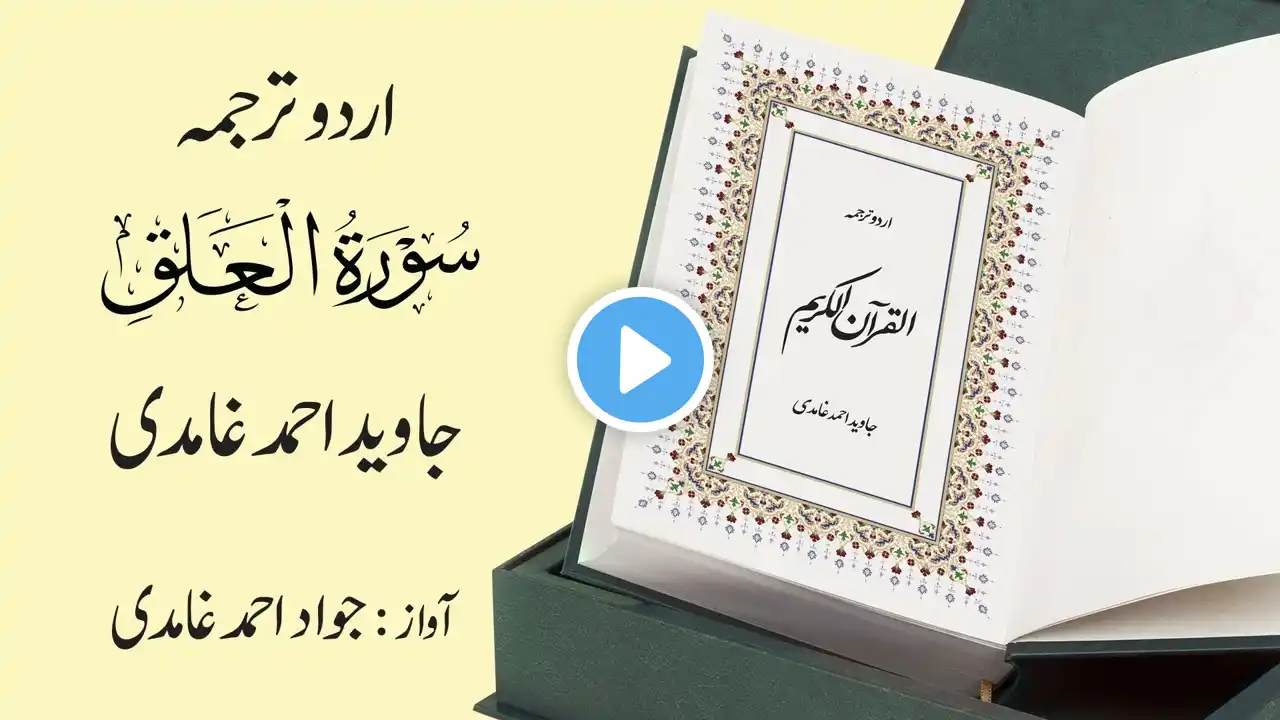 اردو ترجمہ
سُوْرَةُ الْعَلَقِ
جاوید احمد غامدی
آواز : جواد احمد غامدی
اردو ترجمہ
القرآن الکریم
جاوید احمد غامدی